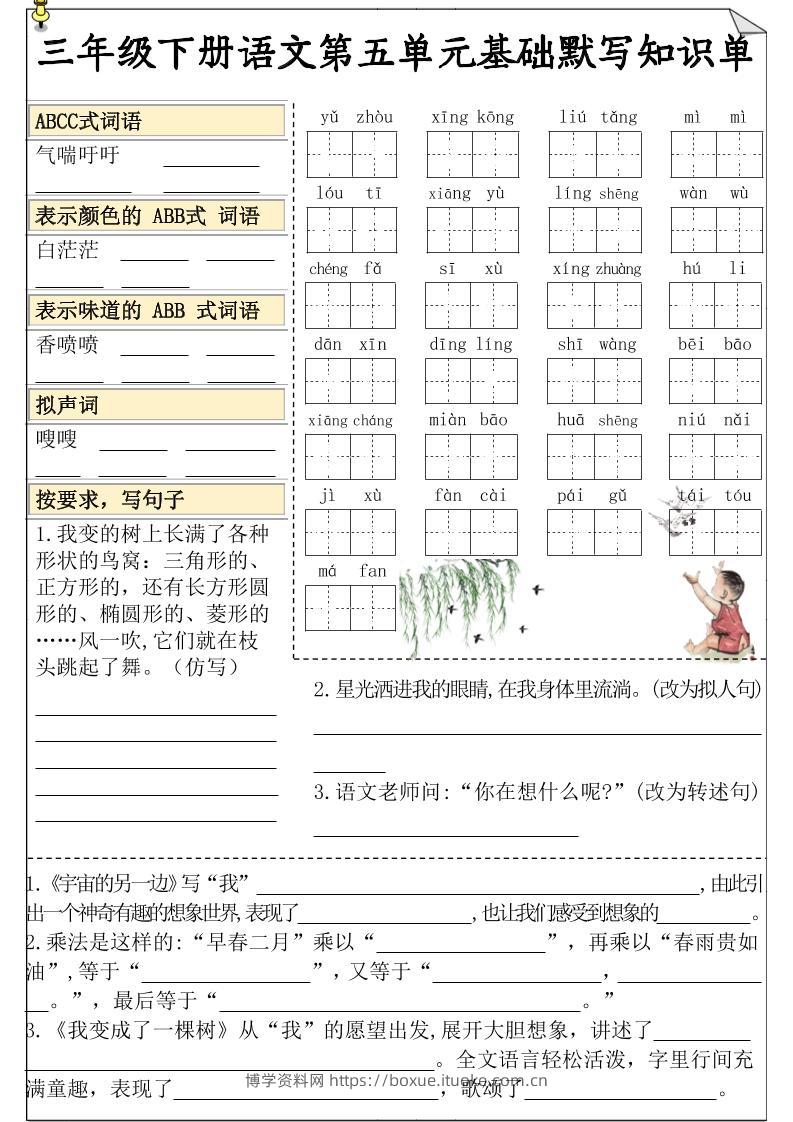 三年级下册语文第五单元基础默写知识单
ABCC式词语
气喘吁吁
表示颜色的 ABB式 词语
白茫茫
表示味道的 ABB 式词语
香喷喷
拟声词
嗖嗖
按要求，写句子
1.我变的树上长满了各种
形状的鸟窝：三角形的、
正方形的，还有长方形圆
形的、椭圆形的、菱形的
……风一吹,它们就在枝
头跳起了舞。（仿写）
yǔ zhòu xīng kōng liú tǎng mì mì
lóu tī xiāng yù líng shēng wàn wù
chéng fǎ sī xù xíng zhuàng hú li
dān xīn dīng líng shī wàng bēi bāo
xiāng cháng miàn bāo huā shēng niú nǎi
jì xù fàn cài pái gǔ tái tóu
má fan
2.星光洒进我的眼睛,在我身体里流淌。(改为拟人句)
3.语文老师问:“你在想什么呢?”(改为转述句)
1.《宇宙的另一边》写“我”,由此引
出一个神奇有趣的想象世界,表现了,也让我们感受到想象的。
2.乘法是这样的:“早春二月”乘以“”，再乘以“春雨贵如
油”,等于“”，又等于“,
。”，最后等于“。”
3.《我变成了一棵树》从“我”的愿望出发,展开大胆想象，讲述了
。全文语言轻松活泼，字里行间充
满童趣，表现了，歌颂了。
博学资料网 https://boxue.ituoke.com.cn